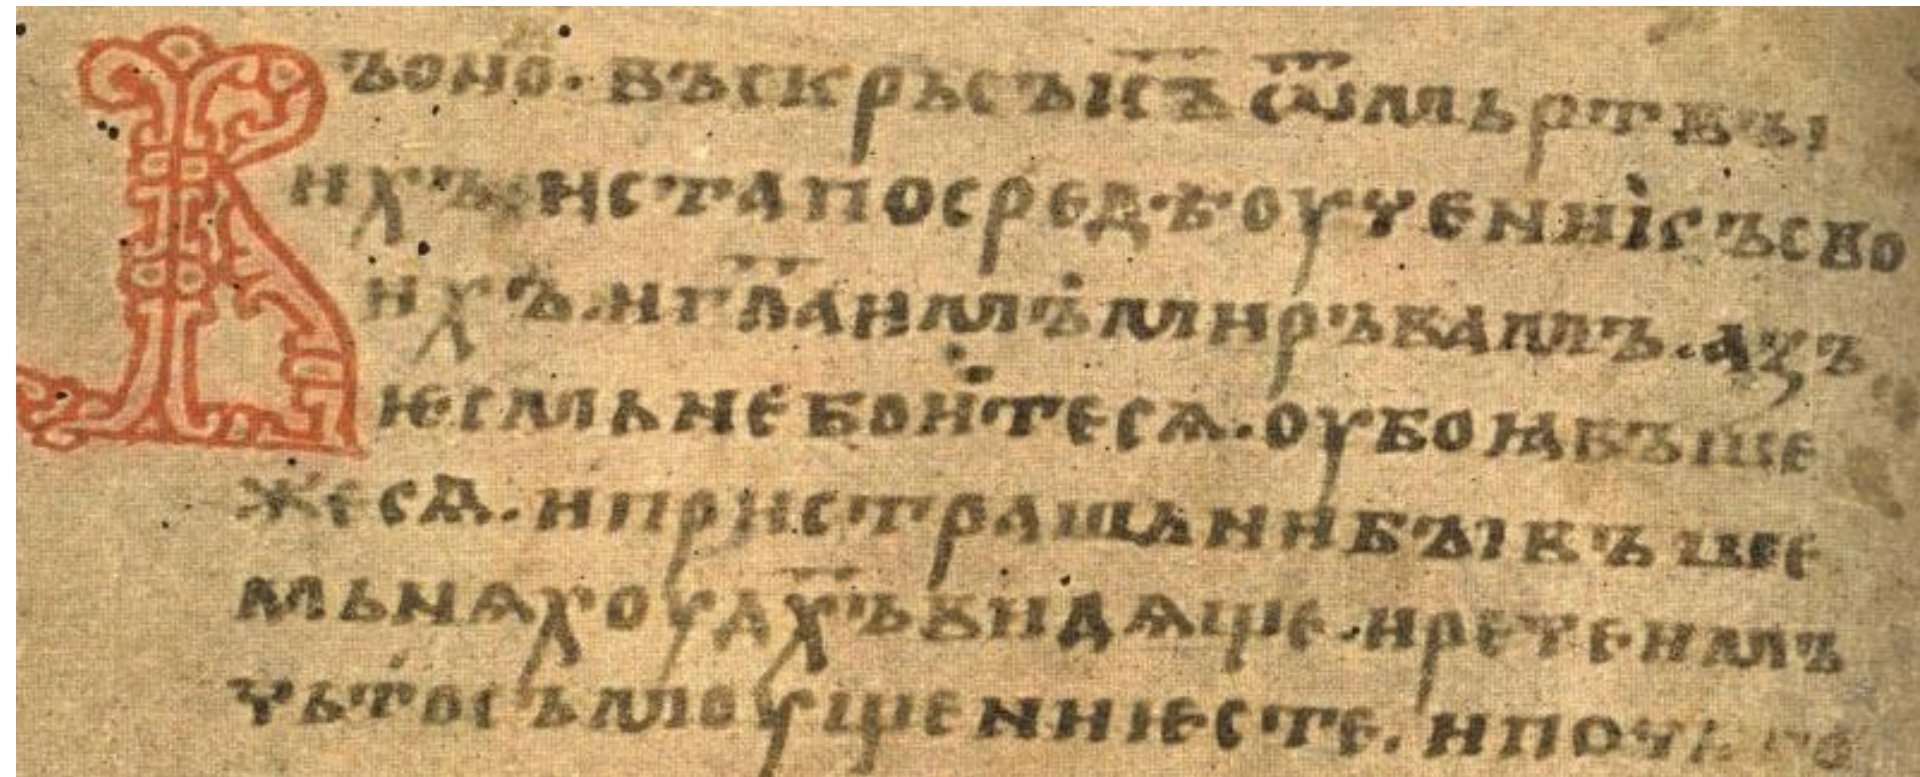 Въоно· въскръсъіс҃ъ ѿмьртвъі
ихъистапосредѣоученнікъсво
ихъ·игл҃аимъмиръвамъ·азъ
ѥсмьнебоитесѧ·оубоꙗвъше
жесѧ·ипристрашьнибъівъше
мьнѧхоуд҃хъвидѧще·иречеимъ
чьтосъмоущениѥсте·ипочьто